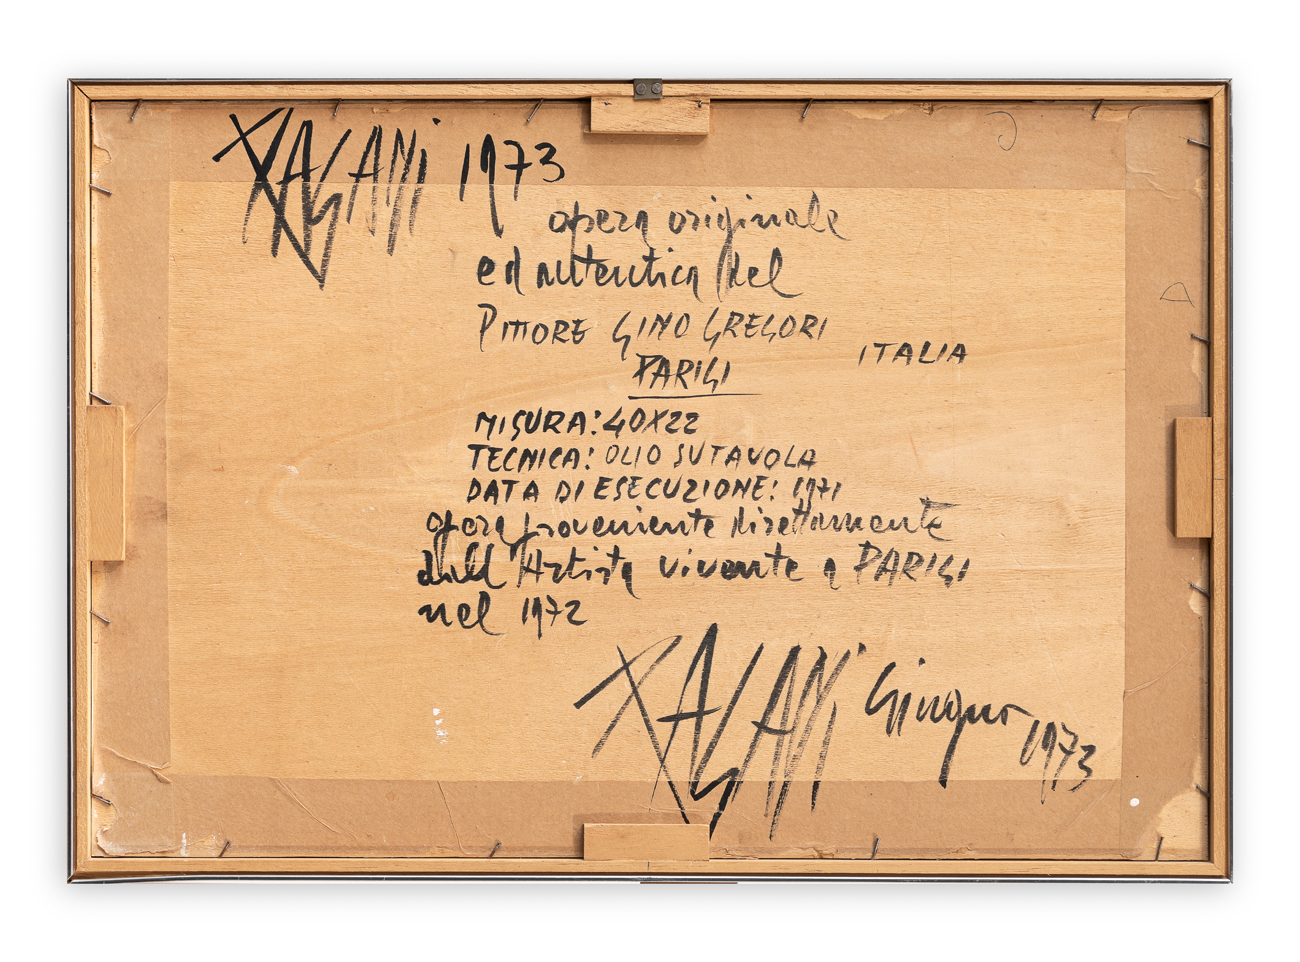 PAGANI 1973
opera originale
ed autentica del
PITTORE GINO GREGORI
ITALIA
PARIGI
MISURA: 40X22
TECNICA: OLIO SU TAVOLA
DATA DI ESECUZIONE: 1971
opera proveniente direttamente
dall'Artista vivente a PARIGI
nel 1972
PAGANI Giugno 1973